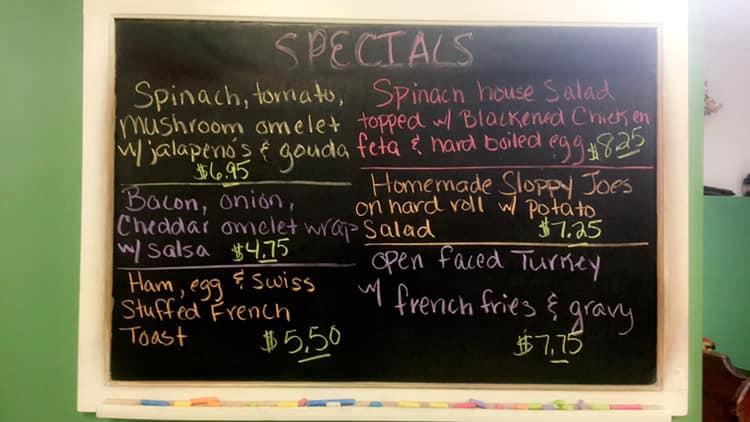 SPECIALS
Spinach, tomato,
Mushroom omelet
w/ jalapeno's & gouda
$6.95
Bacon, onion,
Cheddar omelet wrap
w/ Salsa $4.75
Ham, egg & Swiss
Stuffed French
Toast $5.50
Spinach house Salad
topped w/ Blackened Chicken
feta & hard boiled egg $8.25
Homemade Sloppy Joes
on hard roll w/ potato
Salad $7.25
open faced Turkey
w/ french fries & gravy
$7.75